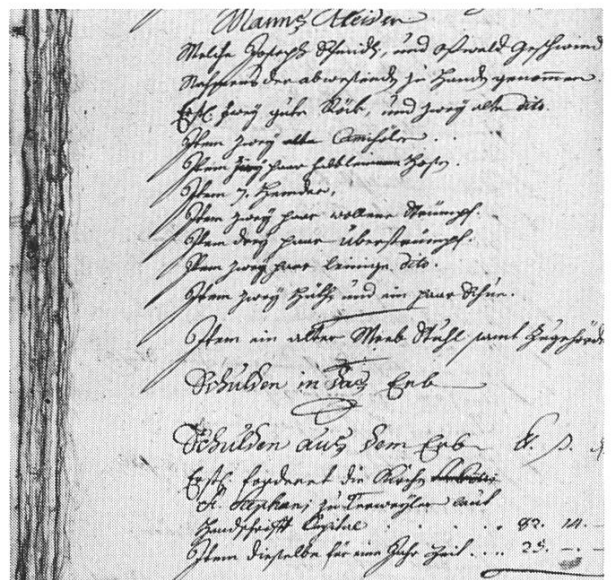 Manns Kleider
Welche Joseph Schmidt, und Oswald Geschwind
Nahmens der abwesenden zu Handen genommen.
Erstl. zwey gute Röck, und zwey alte dito.
Item zwey alte Camisohler
Item zwey paar halbleinene Hosen.
Item 7. Hember,
Item zwey paar wollene Strümpf.
Item drey paar überstrümpf.
Item zwey paar leinige dito.
Item zwey Hüth und ein paar Schue.
Item ein alter Web Stuhl samt Zugehörde
Schulden in das Erb
Schulden aus dem Erb lb. s. d.
Erstl. forderet die Kirche
St. Stephani zu Terweyler laut
Handschrifft Capital . . . . . 82. 14. –
Item dieselbe für eine Jahr Zeit . . . 25. – . –